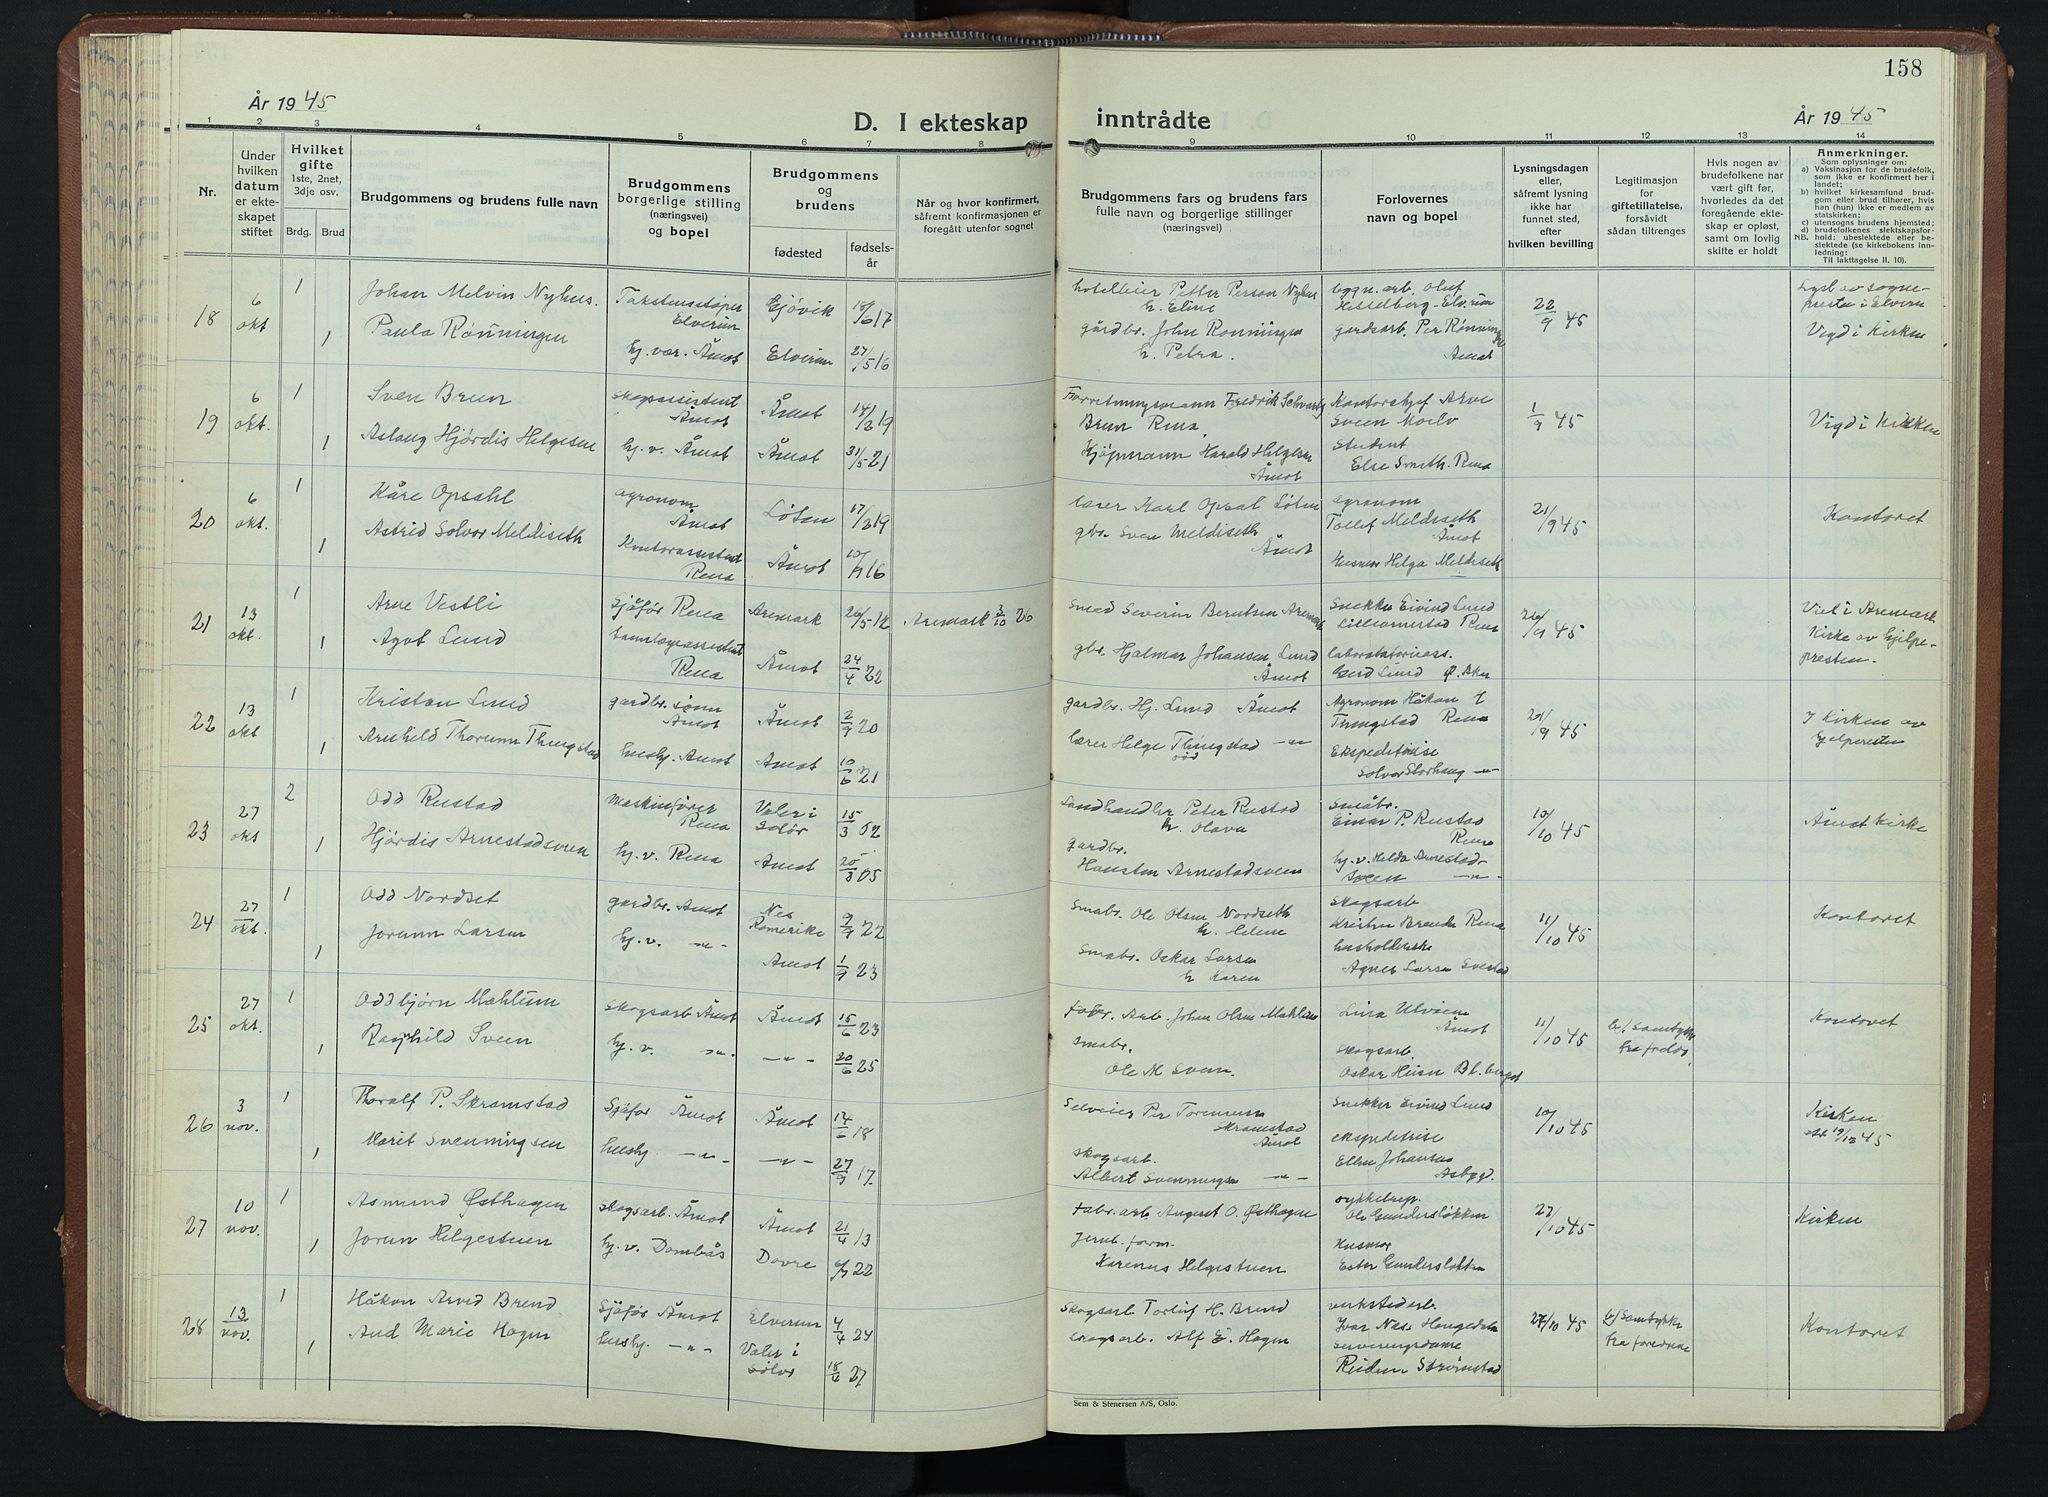 158
År 1945
D. I ekteskap inntrådte
År 1945
1 2 3 4 5 6 7 8 9 10 11 12 13 14
Nr.
Under hvilken datum er ekteskapet stiftet
Hvilket gifte 1ste, 2net, 3dje osv.
Brdg. Brud
Brudgommens og brudens fulle navn
Brudgommens borgerlige stilling (næringsvei) og bopel
Brudgommens og brudens
fødested
fødselsår
Når og hvor konfirmert, såfremt konfirmasjonen er foregått utenfor sognet
Brudgommens fars og brudens fars fulle navn og borgerlige stillinger (næringsvei)
Forlovernes navn og bopel
Lysningsdagen eller, såfremt lysning ikke har funnet sted, efter hvilken bevilling
Legitimasjon for giftetillatelse, forsåvidt sådan tiltrenges
Hvis nogen av brudefolkene har vært gift før, hvorledes da det foregående ekteskap er opløst, samt om lovlig skifte er holdt
Anmerkninger.
Som oplysninger om:
a) Vaksinasjon for de brudefolk, som ikke er konfirmert her i landet;
b) hvilket kirkesamfund brudgom eller brud tilhører, hvis han (hun) ikke er medlem av statskirken;
c) utensogns brudens hjemsted;
d) brudefolkenes slektskapsforhold: ubeslektede eller beslektede (se kirkebokens innledning:
NB. Til iakttagelse II. 10).
18 6 okt 1 Johan Melvin Nyhus. Elverum Gjøvik 18/6 17 hotelleier Petter Person Nyhus h. Eline bygn. arb. Oluf Hesselberg - Elverum 22/9 45 Lyst av sognepresten i Elverum
1 Paula Rønningen hj. vær. Åmot Elverum 27/5 16 gårdbr. John Rønningen h. Petra. gardsarb. Per Rønningen Åmot Vigd i Kirken
19 6 okt. 1 Sven Brun skogassistent Åmot Åmot 14/2 19 Forretningsmann Fredrik Brun Rena Kontorsjef Arve Sveen Moelv 1/9 45 Vigd i Kirken
1 Aslaug Hjørdis Helgesen hj. v. Åmot Åmot 31/5 21 Kjøpmann Harald Helgesen Åmot Student Else Smith. Rena
20 6 okt. 1 Kåre Opsahl agronom Åmot Løten 17/2 19 lærer Karl Opsal Løten agronom Tollef Meldiseth Åmot 21/9 45 Kontoret
1 Astrid Solvor Meldiseth Rena Åmot 16 gbr. Sven Meldiseth Åmot Husmor Helga Meldiseth
21 13 okt. 1 Arne Vestli Sjåfør Rena Aremark 26/5 12 Aremark 3/10 26 Smed Severin Berntsen Aremark Snekker Eivind Lund Rena 26/9 45 Viet i Aremark Kirke av hjelpepresten.
1 Agot Lund tannlegeassistent Rena Åmot 24/4 22 gbr. Hjalmar Johansen Lund Åmot laboratorieass. Gerd Lund Aker
22 13 okt 1 Kristan Lund gardbr. sønn Åmot Åmot 2/9 20 gardbr. Hj. Lund Åmot Agronom Håkon Tringstad Rena 45 I Kirken av hjelpepresten
1 Arnhild Thorunn Thingstad hush. Åmot Åmot 10/6 21 lærer Helge Thingstad -"- Ekspeditrise Solvor Storhaug -"-
23 27 okt 2 Odd Rustad Maskinfører Rena Våler i Solør 15/3 02 Landhandler Peter Rustad h. Olava småbr. Einar P. Rustad Rena 10/10 45 Åmot Kirke
1 Hjørdis Arnestadsveen hj. v. Rena Åmot 25/8 05 gardbr. Arnestadsveen hj. v. Arnestadsveen -"-
24 27 okt. 1 Odd Nordset gardbr. Åmot Nes Romerike 9/9 22 Småbr. Ole Olsen Nordseth h. Helene Skogsarb Rena 11/10 45 Kontoret
1 Jorunn Larsen hj. v. -"- Åmot 1/9 23 Småbr. Oskar Larsen h Karen husholderske Agnes Larsen
25 27 okt. 1 Oddbjørn Mæhlum Skogsarb Åmot Åmot 15/6 23 Arb. Johan Olsen Mæhlum Åmot 11/10 45 b/ samtykke fra Kontoret
1 Ragnhild Sveen hj. v. -"- -"- 20/6 25 småbr. Ole M Sveen. skogsarb. Oskar
26 3 nov. 1 Thoralf P. Skramstad Sjåfør Åmot Åmot 14/6 18 Selveier Per Skramstad Åmot Snekker Eivind Lund 10/10 45 Kirken
1 Marit Svenningsen hush. -"- -"- 27/9 17. skogsarb. Albert Svenningsen -"- ekspeditrise Ellen Johansen Åsbygd.
27 10 nov. 1 Asmund Østhagen Skogsarb. Åmot Åmot 21/4 13 fabr. arb August O. Østhagen Ole Gundersløkken 27/10 45 Kirken
1 Jorun Helgestuen hj. v. Dombås Dovre 22 Jernb. form. Karenus Helgestuen Husmor Ester Gundersløkken
28 13 nov. 1 Håkon Arvid Brend Sjåfør Åmot Elverum 4/4 24 Skogsarb Torleif H. Brend verkstedarb. 27/10 45 b/ Samtykke fra foreldrene Kontoret
1 Aud Marie Hagen hush. -"- Våler i Solør 18/6 27 skogsarb. Alf E. Hagen serveringsdame Strømstad
Sem & Stenersen A/S, Oslo.